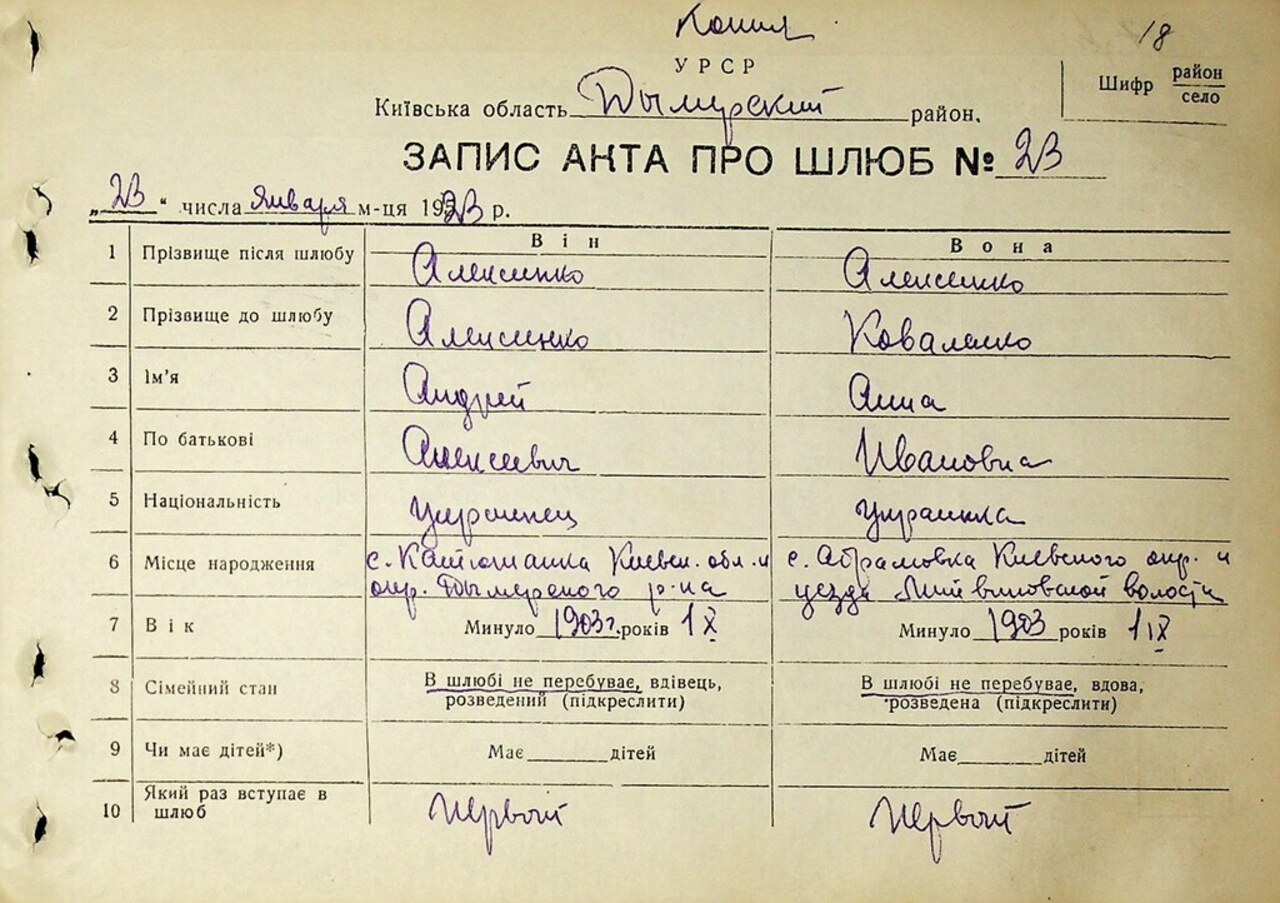 Копия
18
УРСР
Шифр район
село
Київська область Дымерский район.
ЗАПИС АКТА ПРО ШЛЮБ № 23
„23“ числа января м-ця 1923 р.
Він Вона
1 Прізвище після шлюбу Алексенко Алексенко
2 Прізвище до шлюбу Алексенко Коваленко
3 Ім'я Андрей Анна
4 По батькові Алексеевич Ивановна
5 Національність украинец украинка
6 Місце народження с. Катюжанка Киевск. обл. и с. Абрамовка Киевского окр. и
окр. Дымерского р-на уезда волости
7 Вік Минуло 1903 г. років 1 X Минуло 1903 років 1 IX
8 Сімейний стан В шлюбі не перебуває, вдівець, В шлюбі не перебуває, вдова,
розведений (підкреслити) розведена (підкреслити)
9 Чи має дітей*) Має дітей Має дітей
10 Який раз вступає в шлюб Первый Первый